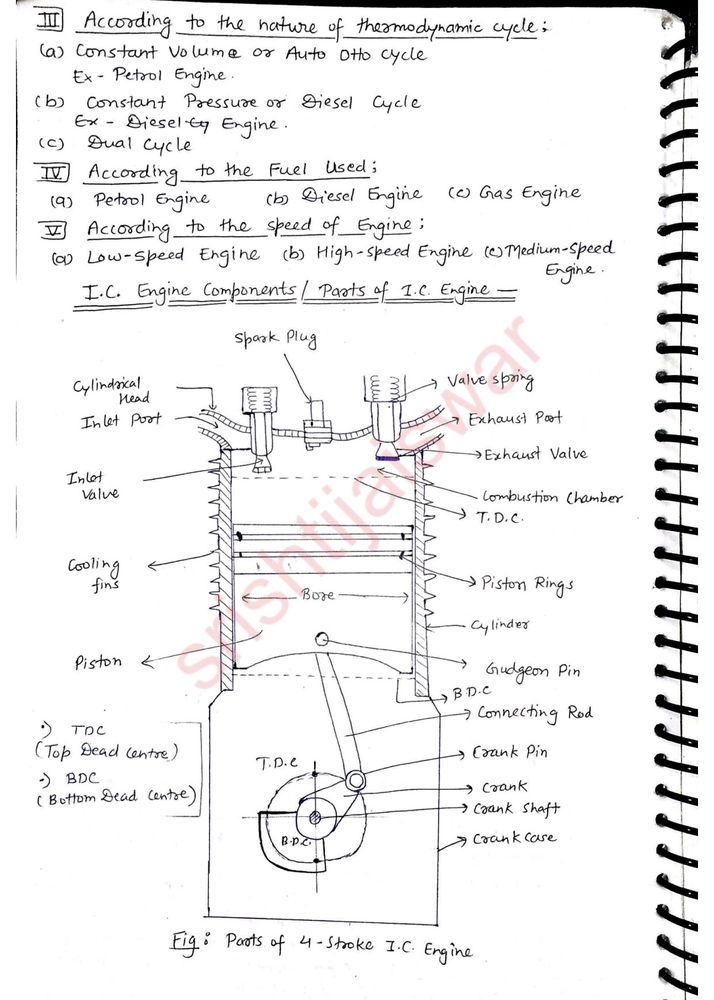 III According to the nature of thermodynamic cycle;
(a) Constant Volume or Auto Otto cycle
Ex - Petrol Engine.
(b) Constant Pressure or Diesel Cycle
Ex - Diesel Eg Engine.
(c) Dual Cycle
IV According to the Fuel Used;
(a) Petrol Engine (b) Diesel Engine (c) Gas Engine
V According to the speed of Engine;
(a) Low-Speed Engine (b) High-speed Engine (c) Medium-Speed
Engine.
I.C. Engine Components/ Parts of I.C. Engine —
Spark Plug
Cylindrical
Head
Valve spring
Inlet Port
Exhaust Port
Exhaust Valve
Inlet
Valve
Combustion Chamber
T.D.C.
Cooling
fins
Piston Rings
Bore
Cylinder
Piston
Gudgeon Pin
B.D.C
Connecting Rod
·) TDC
(Top Dead Centre)
·) BDC
(Bottom Dead Centre)
T.D.C
Crank Pin
Crank
Crank Shaft
B.D.C.
Crank Case
Fig: Parts of 4-Stroke I.C. Engine
srishtijaiswar